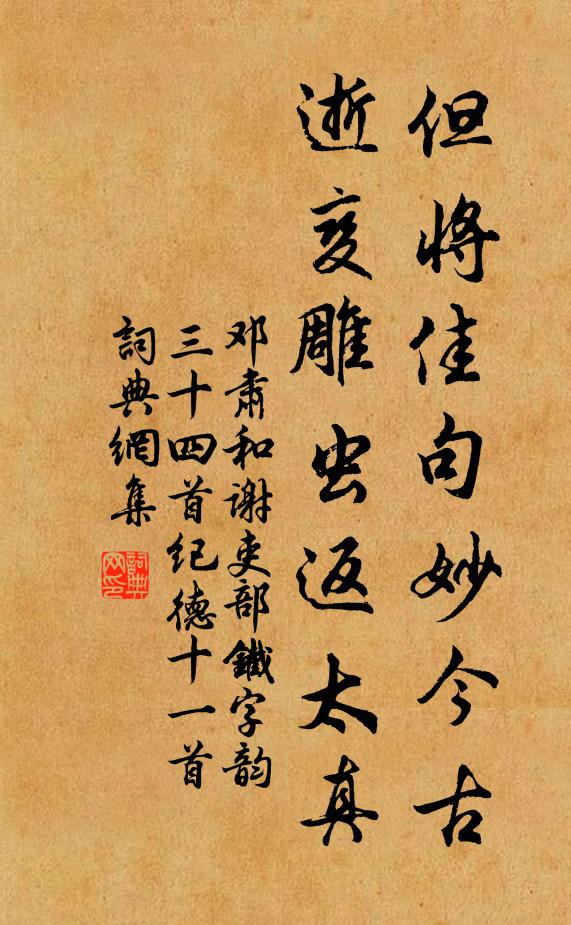 但将佳句妙今古
逝变雕虫返太真
邓肃和谢吏部鐵字韵
三十四首纪德十一首
詞典網集
詞典网印